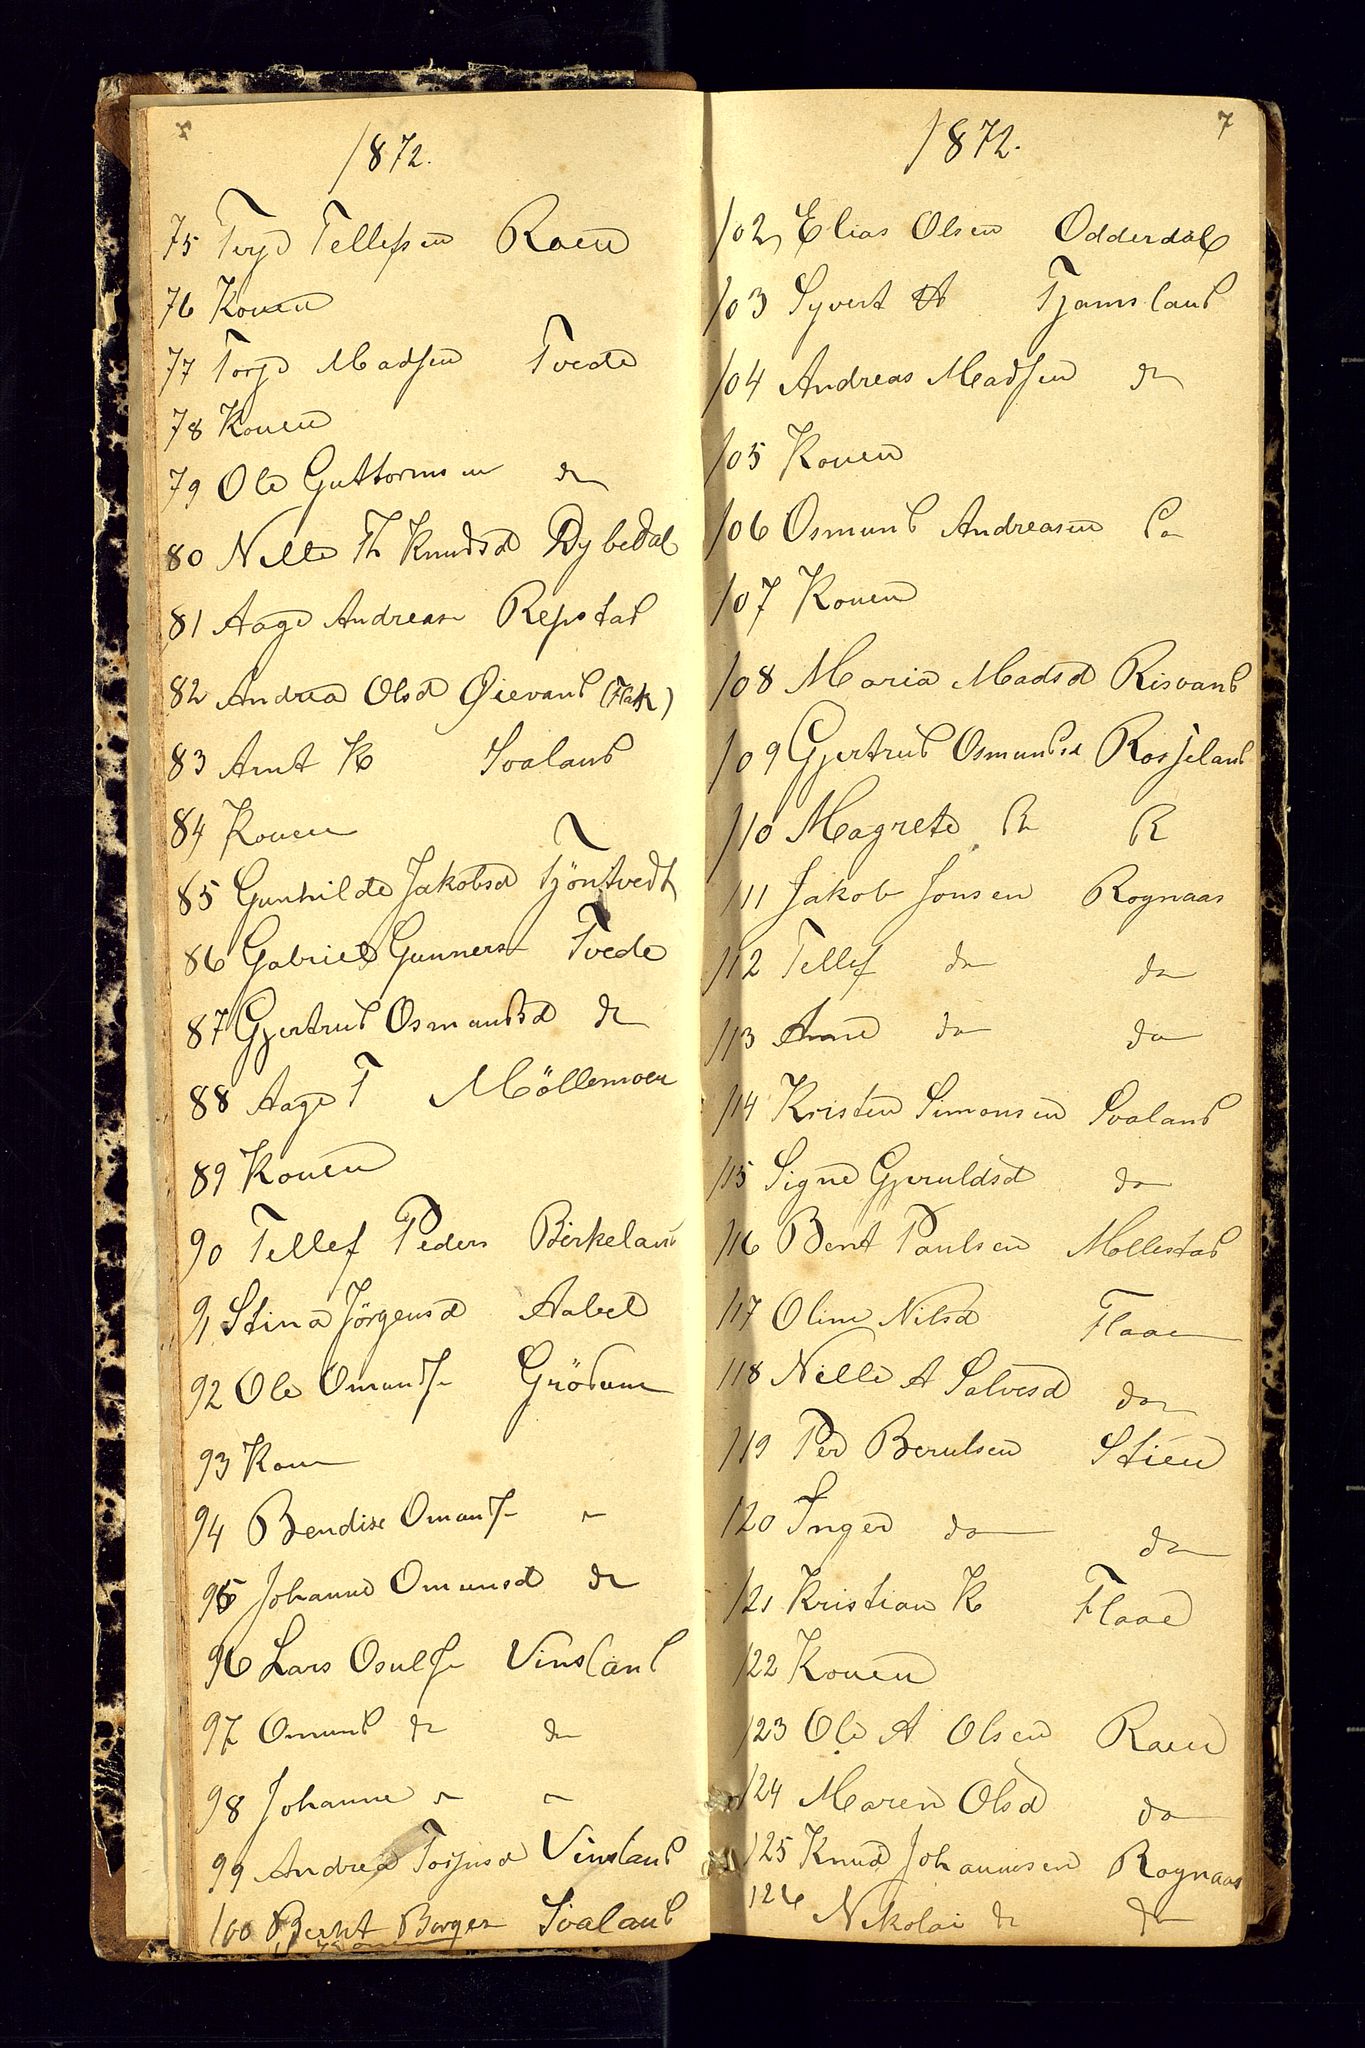 1872.
75 Terje Tellefsen Raen
76 Konen
77 Torje Madsen Tvede
78 Konen
79 Ole Guttormsen do
80 Nille Th Knudsd Dybedal
81 Aage Andreas Repstad
82 Andrea Olsd Øievand (Flak)
83 Arnt K Svaland
84 Konen
85 Gunhilde Jakobsd Tjöntvedt
86 Gabriel Gunners Tvede
87 Gjertrud Osmundsd do
88 Aage T Möllemoen
89 Konen
90 Tellef Peders Birkeland
91 Stina Jörgensd Aabel
92 Ole Omunds Grödum
93 Kone
94 Bendix Omunds "
95 Johanne Omunsd do
96 Lars Osuls Vinsland
97 Omund do do
98 Johanne " "
99 Andrea Torjusd Vinsland
100 Bernt Borger Svaland
11 Konen
7
1872.
102 Elias Olsen Odderdal
103 Syvert A Tjomsland
104 Andreas Madsen do
105 Konen
106 Osmund Andreasen do
107 Konen
108 Maria Madsd Risvand
109 Gjertrud Osmundsd Rosseland
110 Magrete R R
111 Jakob Jonsen Rognaas
112 Tellef do do
113 Anne do do
114 Kristen Simonsen Svaland
115 Signe Gjeruldsd do
116 Bent Paulsen Mollestad
117 Oline Nilsd Flaae
118 Nille A Salvesd do
119 Per Berulsen Stien
120 Inger do do
121 Kristian K Flaae
122 Konen
123 Ole A Olsen Raen
124 Maren Olsd do
125 Knud Johannesen Rognaas
126 Nikolai do do